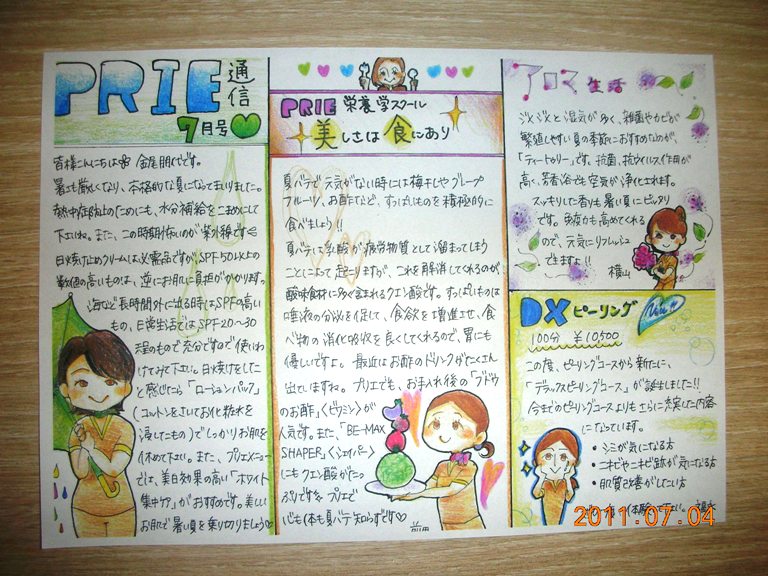 PRIE 通信
7月号
皆様こんにちは 金尾朋代です。
暑さも厳しくなり、本格的な夏になってまいりました。
熱中症防止のためにも、水分補給をこまめにして
下さいね。また、この時期怖いのが紫外線です
日焼け止めクリームは必需品ですが、SPF50以上の
数値の高いものは、逆にお肌に負担がかかります。
海など長時間外に出る時はSPFの高い
もの、日常生活ではSPF20〜30
程のもので充分ですので使いわ
けてみて下さい。日焼けをした
と感じたら「ローションパック」
(コットンをさいてお化粧水を
浸したもの)でしっかりお肌を
休めて下さい。また、プリエメニュー
では、美白効果の高い「ホワイト
集中ケア」がおすすめです。美しい
お肌で暑い夏を乗り切りましょう♡
PRIE 栄養学スクール
美しさは食にあり
夏バテで元気がない時には梅干しやグレープ
フルーツ、お酢など、すっぱいものを積極的に
食べましょう!!
夏バテは乳酸が疲労物質として溜まってしまう
ことによって起こりますが、これを解消してくれるのが
酸味食材に多く含まれるクエン酸です。すっぱいものは
唾液の分泌を促して、食欲を増進させ、食
べ物の消化吸収を良くしてくれるので、胃にも
優しいですよ。最近はお酢のドリンクがたくさん
出ていますね。プリエでも、お手入れ後の「ブドウ
のお酢」<ビウミン>が
人気です。また、「BE-MAX
SHAPER」<シェイパー>
にもクエン酸がたっ
ぷりです プリエで
心も体も夏バテ知らずです♡
アロマ生活
ジメジメと湿気が多く、雑菌やカビが
繁殖しやすい夏の季節におすすめなのが、
「ティートゥリー」です。抗菌、抗ウイルス作用が
高く、芳香浴でも空気が浄化されます。
スッキリした香りも暑い夏にピッタリ
です。免疫力も高めてくれる
ので、元気にリフレッシュ
できますよ!!
横山
DXピーリング New!!
100分 ¥10,500
この度、ピーリングコースから新たに、
「デラックスピーリングコース」が誕生しました!!
今までのピーリングコースよりもさらに充実した内容
になっています。
• シミが気になる方
• ニキビやニキビ跡が気になる方
• 肌質改善がしたい方
2011.07.04